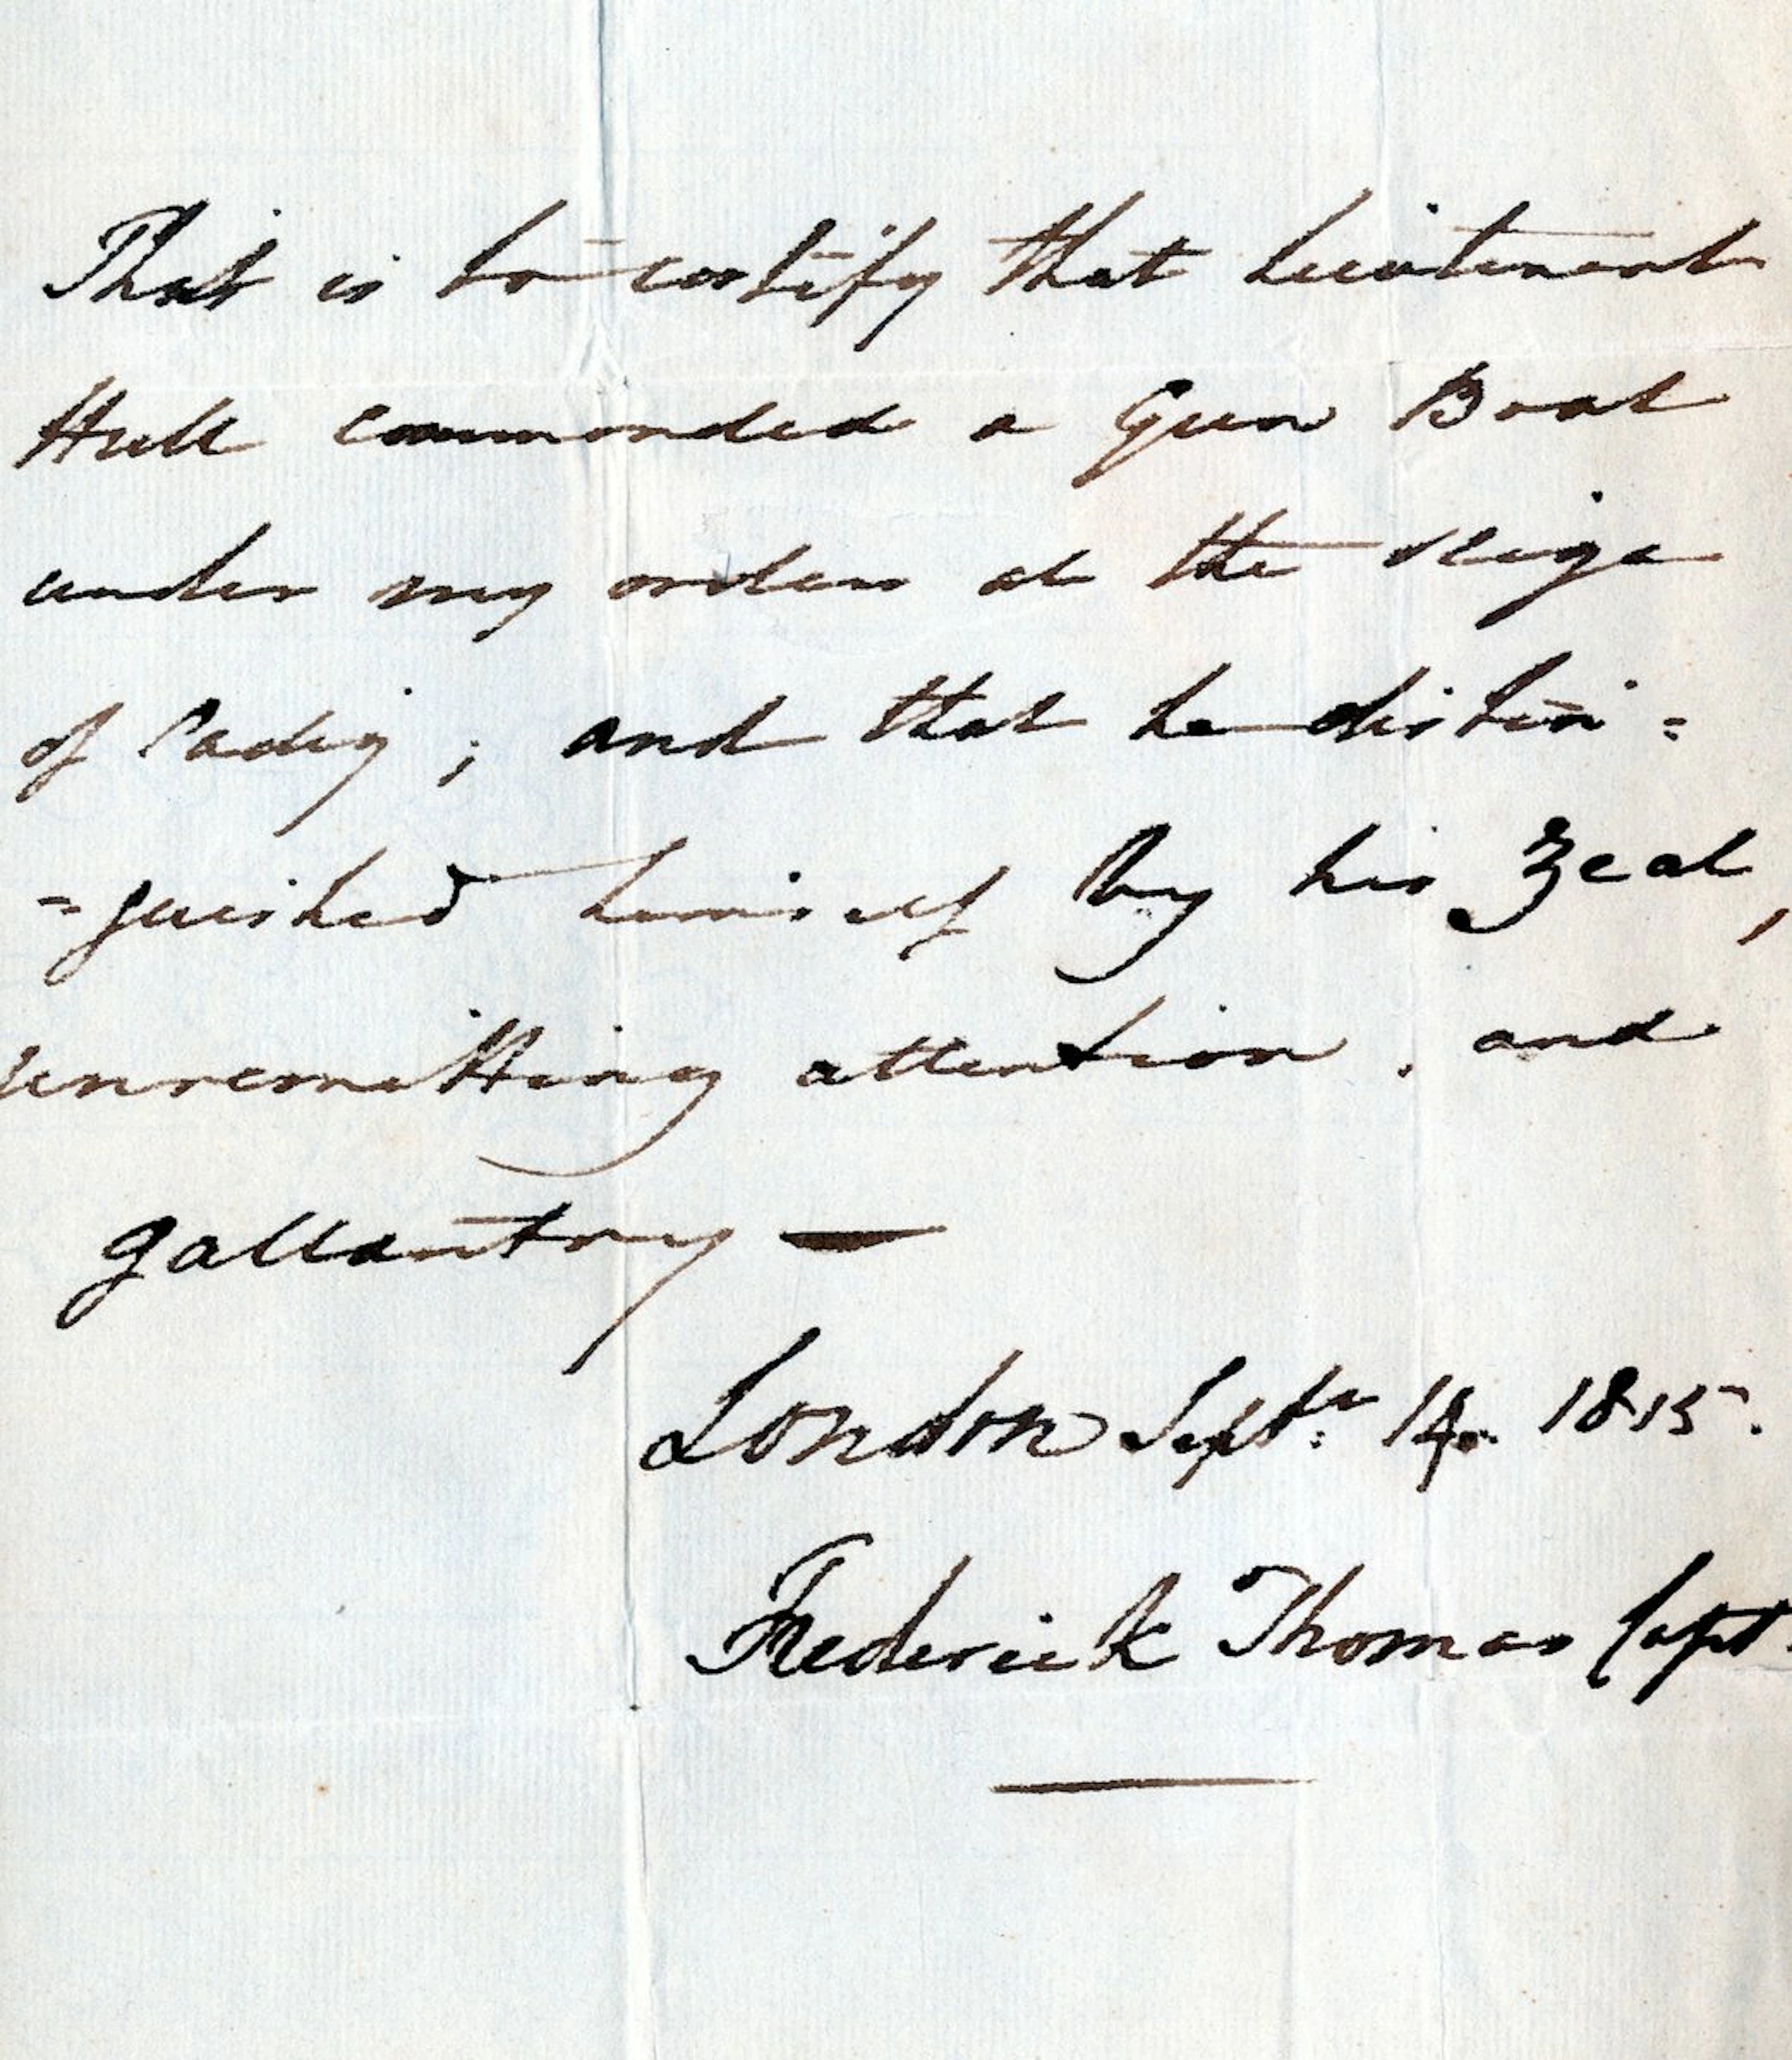 This is to certify that Lieutenant
Hull commanded a Gun Boat
under my orders at the seige
of Cadiz ; and that he distin =
= guished himself by his Zeal ,
unremitting attention , and
gallantry —
London Septr: 14. 1815.
Frederick Thomas Capt.